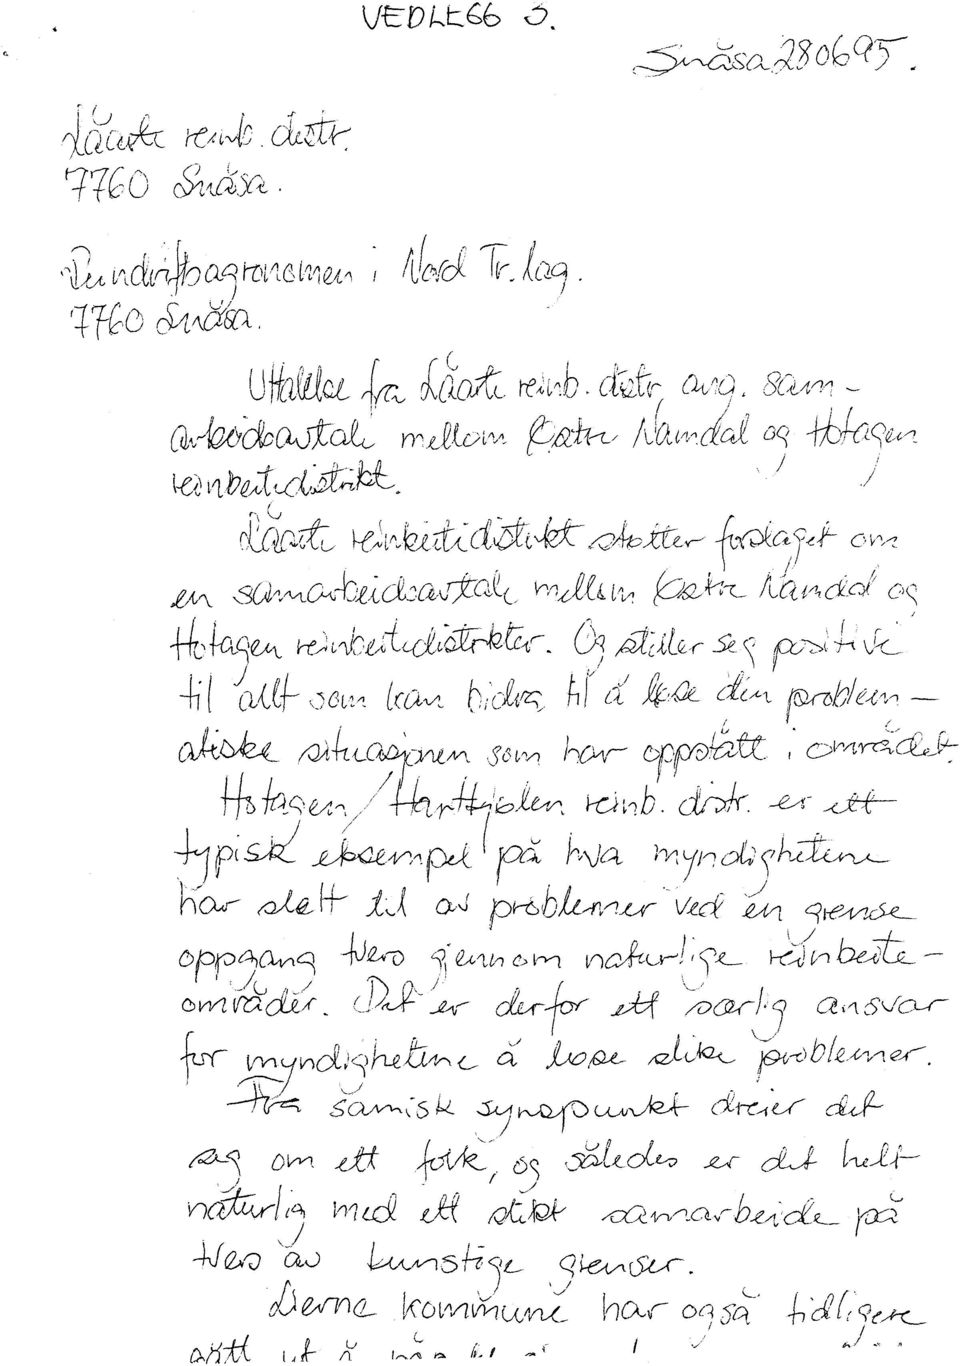 VEDLEGG 3.
Snåsa 280695.
Låarte reinb. distr.
7760 Snåsa.
Reindriftsagronomen i Nord Tr.lag.
7760 Snåsa.
Uttalelse fra Låarte reinb. distr, ang. sam-
arbeidsavtale mellom Østre Namdal og Hotagen
reinbeitedistrikt.
Låarte reinbeitedistrikt støtter forslaget om
en samarbeidsavtale mellom Østre Namdal og
Hotagen reinbeitedistrikter. Og stiller seg positive
til allt som kan bidra til å løse den problem-
atiske situasjonen som har oppstått i området.
Hotagen/Hartkjølen reinb. distr. er ett
typisk eksempel på hva myndighetene
har stelt til av problemer ved en grense
oppgang tvers gjennom naturlige reinbeite-
områder. Det er derfor ett særlig ansvar
for myndighetene å løse slike problemer.
Fra samisk synspunkt dreier det
seg om ett folk, og således er det helt
naturlig med ett slikt samarbeide på
tvers av kunstige grenser.
Lierne kommune har også tidligere
gått ut å